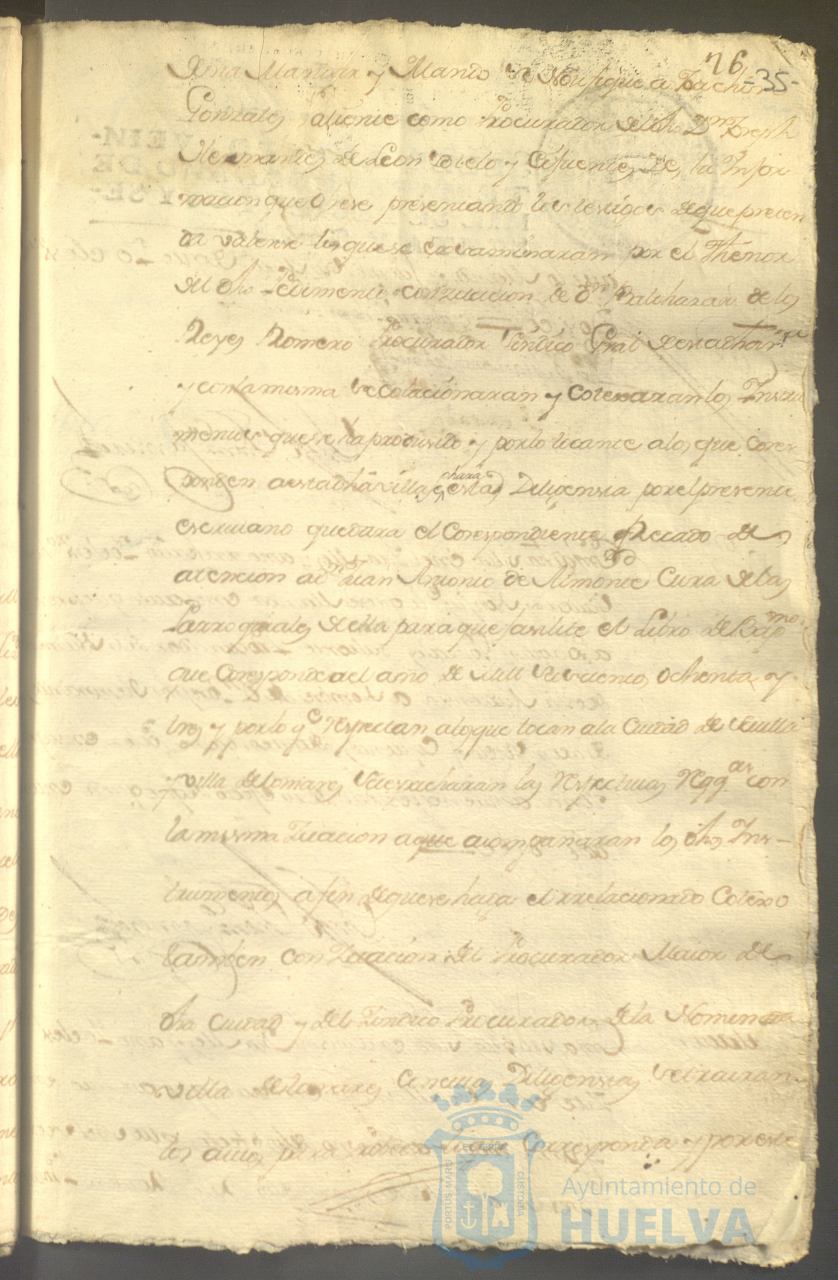 76
-35-
y Mando se Notifique a
Gonzales, aliente como Procurador del dho Dn Joseph
Hernandes de Leon Sotelo y Cifuentes De la Infor
macion que Ofrese presentando los testigos de que preten
da valerse los que se examinaran por el Thenor
del dho Pedimento con zitacion de Dn Balthazar de los
Reyes Romero Procurador Sindico Gral de esta dha
y con la misma se colacionaran y Cotexaran los Instru
mentos que se ha producido y por lo tocante a los que Corres
ponden a esta dha villa, Diligensia por el presente
escriuano quedara el Correspondiente Recado de
atencion a Dn Juan Antonio de Almonte Cura de las
Parroquiales de ella para que fasilite el Libro de Bapmos
que Coresponde al año de Mill Setecientos Ochenta y
tres y por lo qe respectan a los que tocan a la Ciudad de Seuilla
villa de Tomares Se despacharan las Respectiuas Reqqas con
la misma Zitacion a que acompañaran los dhos Ins-
trumentos a fin de que se haga el relacionado Cotexo
tambien con Zitacion del Procurador Maior de
dha Ciudad y del Sindico Procurador de la Nominada
villa de Tomares Diligensias se traixan
los autos para Corresponda y por este
PORTUS MARIS
CUSTODIA
Ayuntamiento de
HUELVA